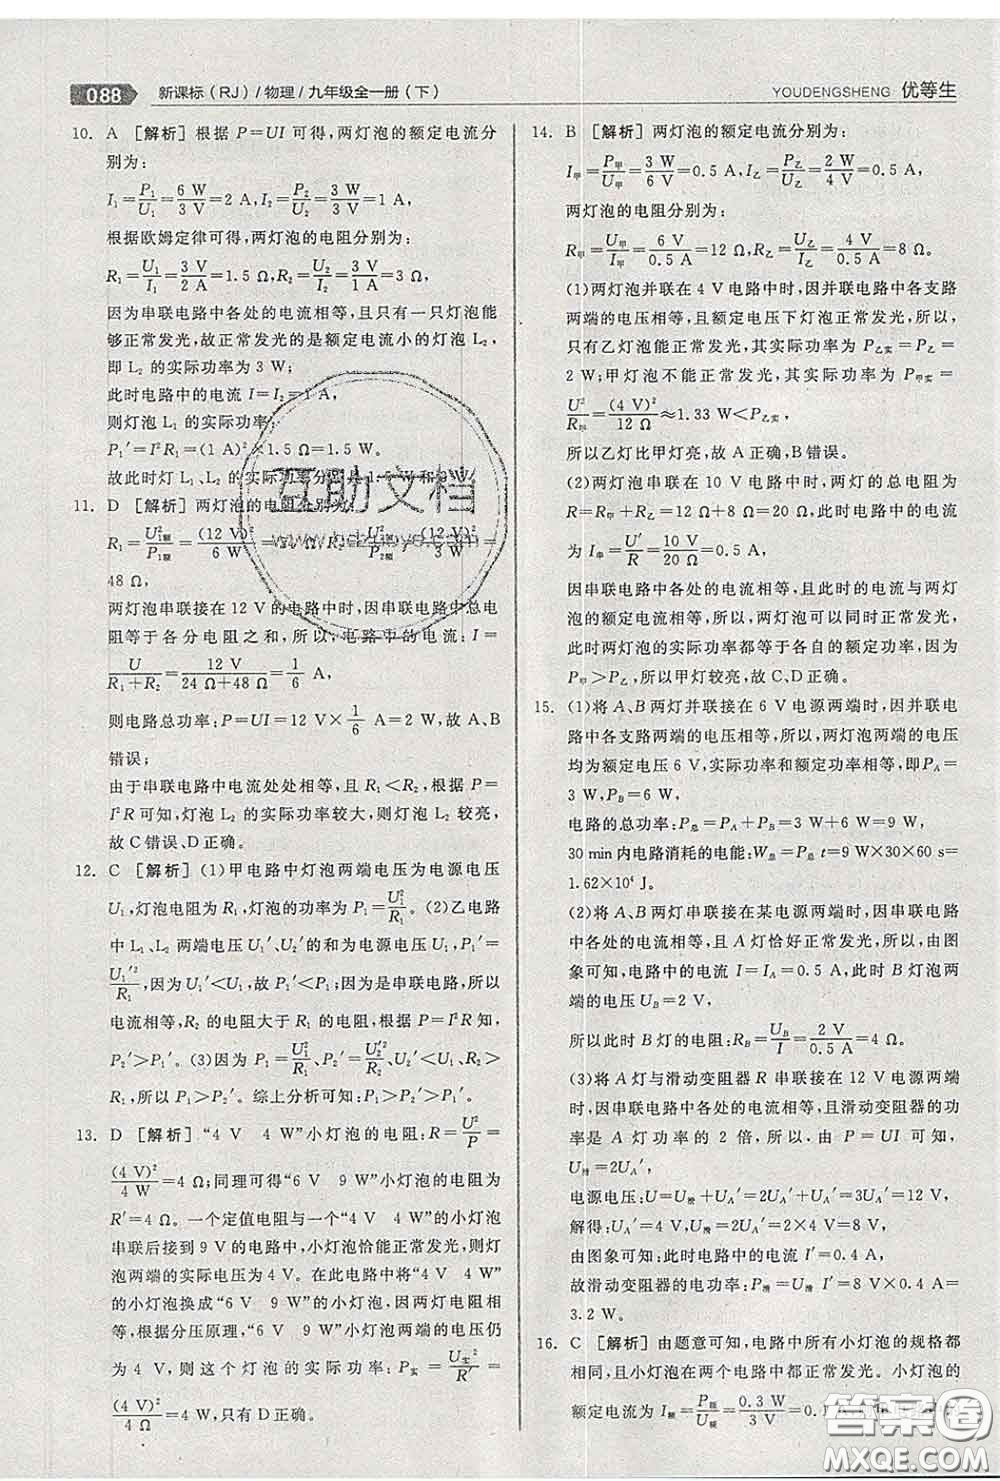 088 新课标(RJ)/物理/九年级全一册(下)
YOUDENGSHENG 优等生
10. A [解析] 根据 P=UI 可得,两灯泡的额定电流分
别为:
I₁=P₁/U₁=6 W/3 V=2 A,I₂=P₂/U₂=3 W/3 V=1 A,
根据欧姆定律可得,两灯泡的电阻分别为:
R₁=U₁/I₁=3 V/2 A=1.5 Ω,R₂=U₂/I₂=3 V/1 A=3 Ω,
因为串联电路中各处的电流相等,且只有一只灯泡
能够正常发光,故正常发光的是额定电流小的灯泡 L₂,
即 L₂ 的实际功率为 3 W;
此时电路中的电流 I=I₂=1 A,
则灯泡 L₁ 的实际功率:
P₁′=I²R₁=(1 A)²×1.5 Ω=1.5 W.
故此时灯 L₁、L₂ 的实际功率分别
11. D [解析] 两灯泡的电阻分别为:
R₁=U²₁额/P₁额=(12 V)²/6 W=24 Ω,R₂=U²₂额/P₂额=(12 V)²/3 W=
48 Ω,
两灯泡串联接在 12 V 的电路中时,因串联电路中总电
阻等于各分电阻之和,所以,电路中的电流:I=
U/(R₁+R₂)=12 V/(24 Ω+48 Ω)=1/6 A,
则电路总功率:P=UI=12 V×1/6 A=2 W,故 A、B
错误;
由于串联电路中电流处处相等,且 R₁<R₂,根据 P=
I²R 可知,灯泡 L₂ 的实际功率较大,则灯泡 L₂ 较亮,
故 C 错误、D 正确。
12. C [解析] (1)甲电路中灯泡两端电压为电源电压
U₁,灯泡电阻为 R₁,灯泡的功率为 P₁=U₁²/R₁。(2)乙电路
中 L₁、L₂ 两端电压 U₁′、U₂′ 的和为电源电压,P₁′=
U₁′²/R₁,因为 U₁′<U₁,所以 P₁′<P₁;因为是串联电路,所以
电流相等,R₂ 的电阻大于 R₁ 的电阻,根据 P=I²R 知,
P₂′>P₁′。(3)因为 P₁=U₁²/R₁、P₂′=U₂′²/R₂、U₁>U₂′、R₂>
R₁,所以 P₁>P₂′。综上分析可知:P₁>P₂′>P₁′。
13. D [解析] “4 V 4 W”小灯泡的电阻:R=U²/P=
(4 V)²/4 W=4 Ω;同理可得“6 V 9 W”小灯泡的电阻为
R′=4 Ω。一个定值电阻与“4 V 4 W”的小灯泡
串联后接到 9 V 的电路中,小灯泡恰能正常发光,则灯
泡两端的实际电压为 4 V。在此电路中将“4 V 4 W”
的小灯泡换成“6 V 9 W”的小灯泡,因两灯电阻相
等,根据分压原理,“6 V 9 W”小灯泡两端的电压仍
为 4 V,则这个灯泡的实际功率:P实=U实²/R′=
(4 V)²/4 Ω=4 W,只有 D 正确。
14. B [解析] 两灯泡的额定电流分别为:
I甲=P甲/U甲=3 W/6 V=0.5 A,I乙=P乙/U乙=2 W/4 V=0.5 A,
两灯泡的电阻分别为:
R甲=U甲/I甲=6 V/0.5 A=12 Ω,R乙=U乙/I乙=4 V/0.5 A=8 Ω。
(1)两灯泡并联在 4 V 电路中时,因并联电路中各支路
两端的电压相等,且额定电压下灯泡正常发光,所以,
只有乙灯泡能正常发光,其实际功率为 P乙实=P乙=
2 W;甲灯泡不能正常发光,其实际功率为 P甲实=
U²/R甲=(4 V)²/12 Ω≈1.33 W<P乙实,
所以乙灯泡比甲灯亮,故 A 正确,B 错误。
(2)两灯泡串联在 10 V 电路中时,电路中的总电阻为
R=R甲+R乙=12 Ω+8 Ω=20 Ω,此时电路中的电流
为 I串=U′/R=10 V/20 Ω=0.5 A,
因串联电路中各处的电流相等,且此时的电流与两灯
泡的额定电流相等,所以两灯泡均能正常发光,
此时两灯泡的实际功率都等于各自的额定功率,因
P甲>P乙,所以甲灯较亮,故 C、D 正确。
15. (1)将 A、B 两灯并联接在 6 V 电源两端时,因并联电
路中各支路两端的电压相等,所以,两灯泡两端的电压
均为额定电压 6 V,实际功率和额定功率相等,即P_A=
3 W,P_B=6 W,
电路的总功率:P总=P_A+P_B=3 W+6 W=9 W,
30 min内电路消耗的电能:W总=P总 t=9 W×30×60 s=
1.62×10⁴ J。
(2)将 A、B 两灯串联接在某电源两端时,因串联电路
中各处的电流相等,且 A 灯恰好正常发光,所以,由图
象可知,电路中的电流 I=I_A=0.5 A,此时 B 灯泡两端
的电压 U_B=2 V,
所以此时 B 灯的电阻:R_B=U_B/I=2 V/0.5 A=4 Ω。
(3)将 A 灯与滑动变阻器 R 串联接在 12 V 电源两端
时,因串联电路中各处的电流相等,且滑动变阻器的功
率是 A 灯功率的 2 倍,所以,由 P=UI 可知,
U滑=2U_A′,
电源电压:U=U滑+U_A′=2U_A′+U_A′=3U_A′=12 V,
解得:U_A′=4 V,U滑=2U_A′=2×4 V=8 V,
由图象可知,此时电路中的电流 I′=0.4 A,
故滑动变阻器的电功率:P滑=U滑 I′=8 V×0.4 A=
3.2 W。
16. C [解析] 由题意可知,电路中所有小灯泡的规格都
相同,且小灯泡在两个电路中都正常发光。小灯泡的
额定电流为 I额=P额/U额=0.3 W/3 V=0.1
互助文档
答案圈
MXQE.COM